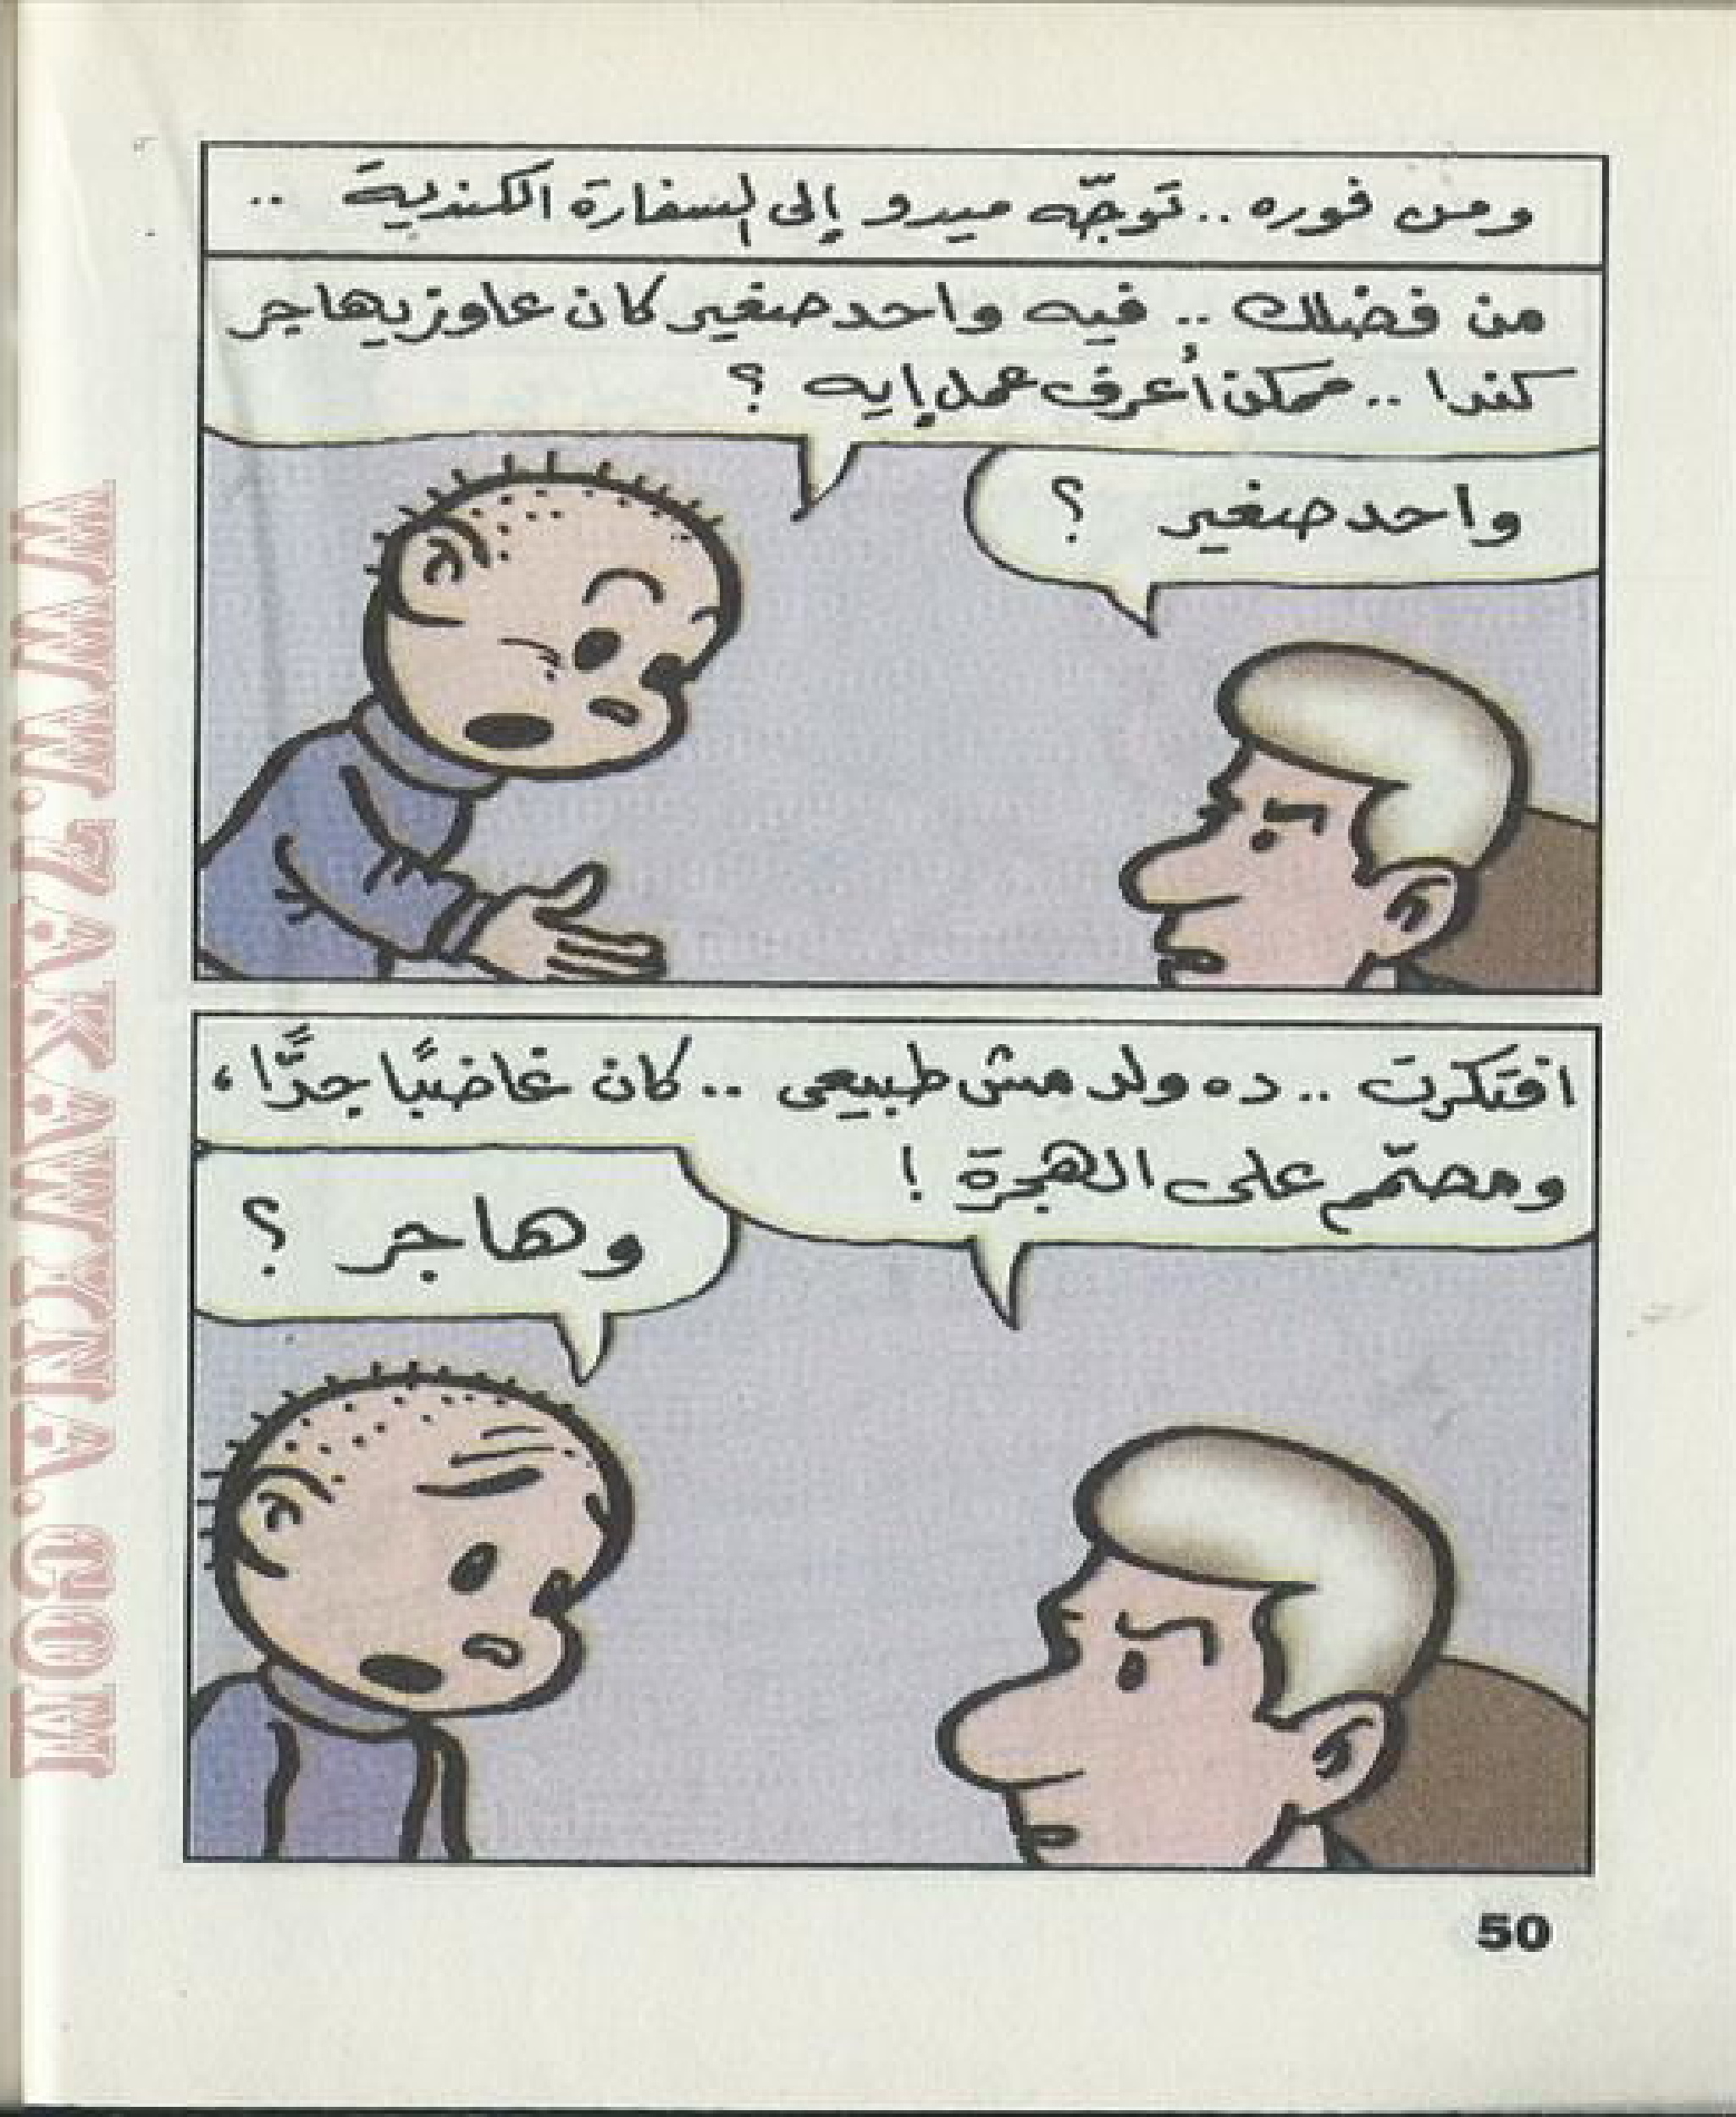 ومن فوره .. توجّه ميدو إلى السفارة الكندية ..
من فضلك .. فيه واحد صغير كان عاوز يهاجر
كندا .. ممكن أعرف عمل إيه ؟
واحد صغير ؟
افتكرت .. ده ولد مش طبيعى .. كان غاضبًا جدًّا،
ومصمّم على الهجرة !
وهاجر ؟
50
WWW.7AKAWINA.COM